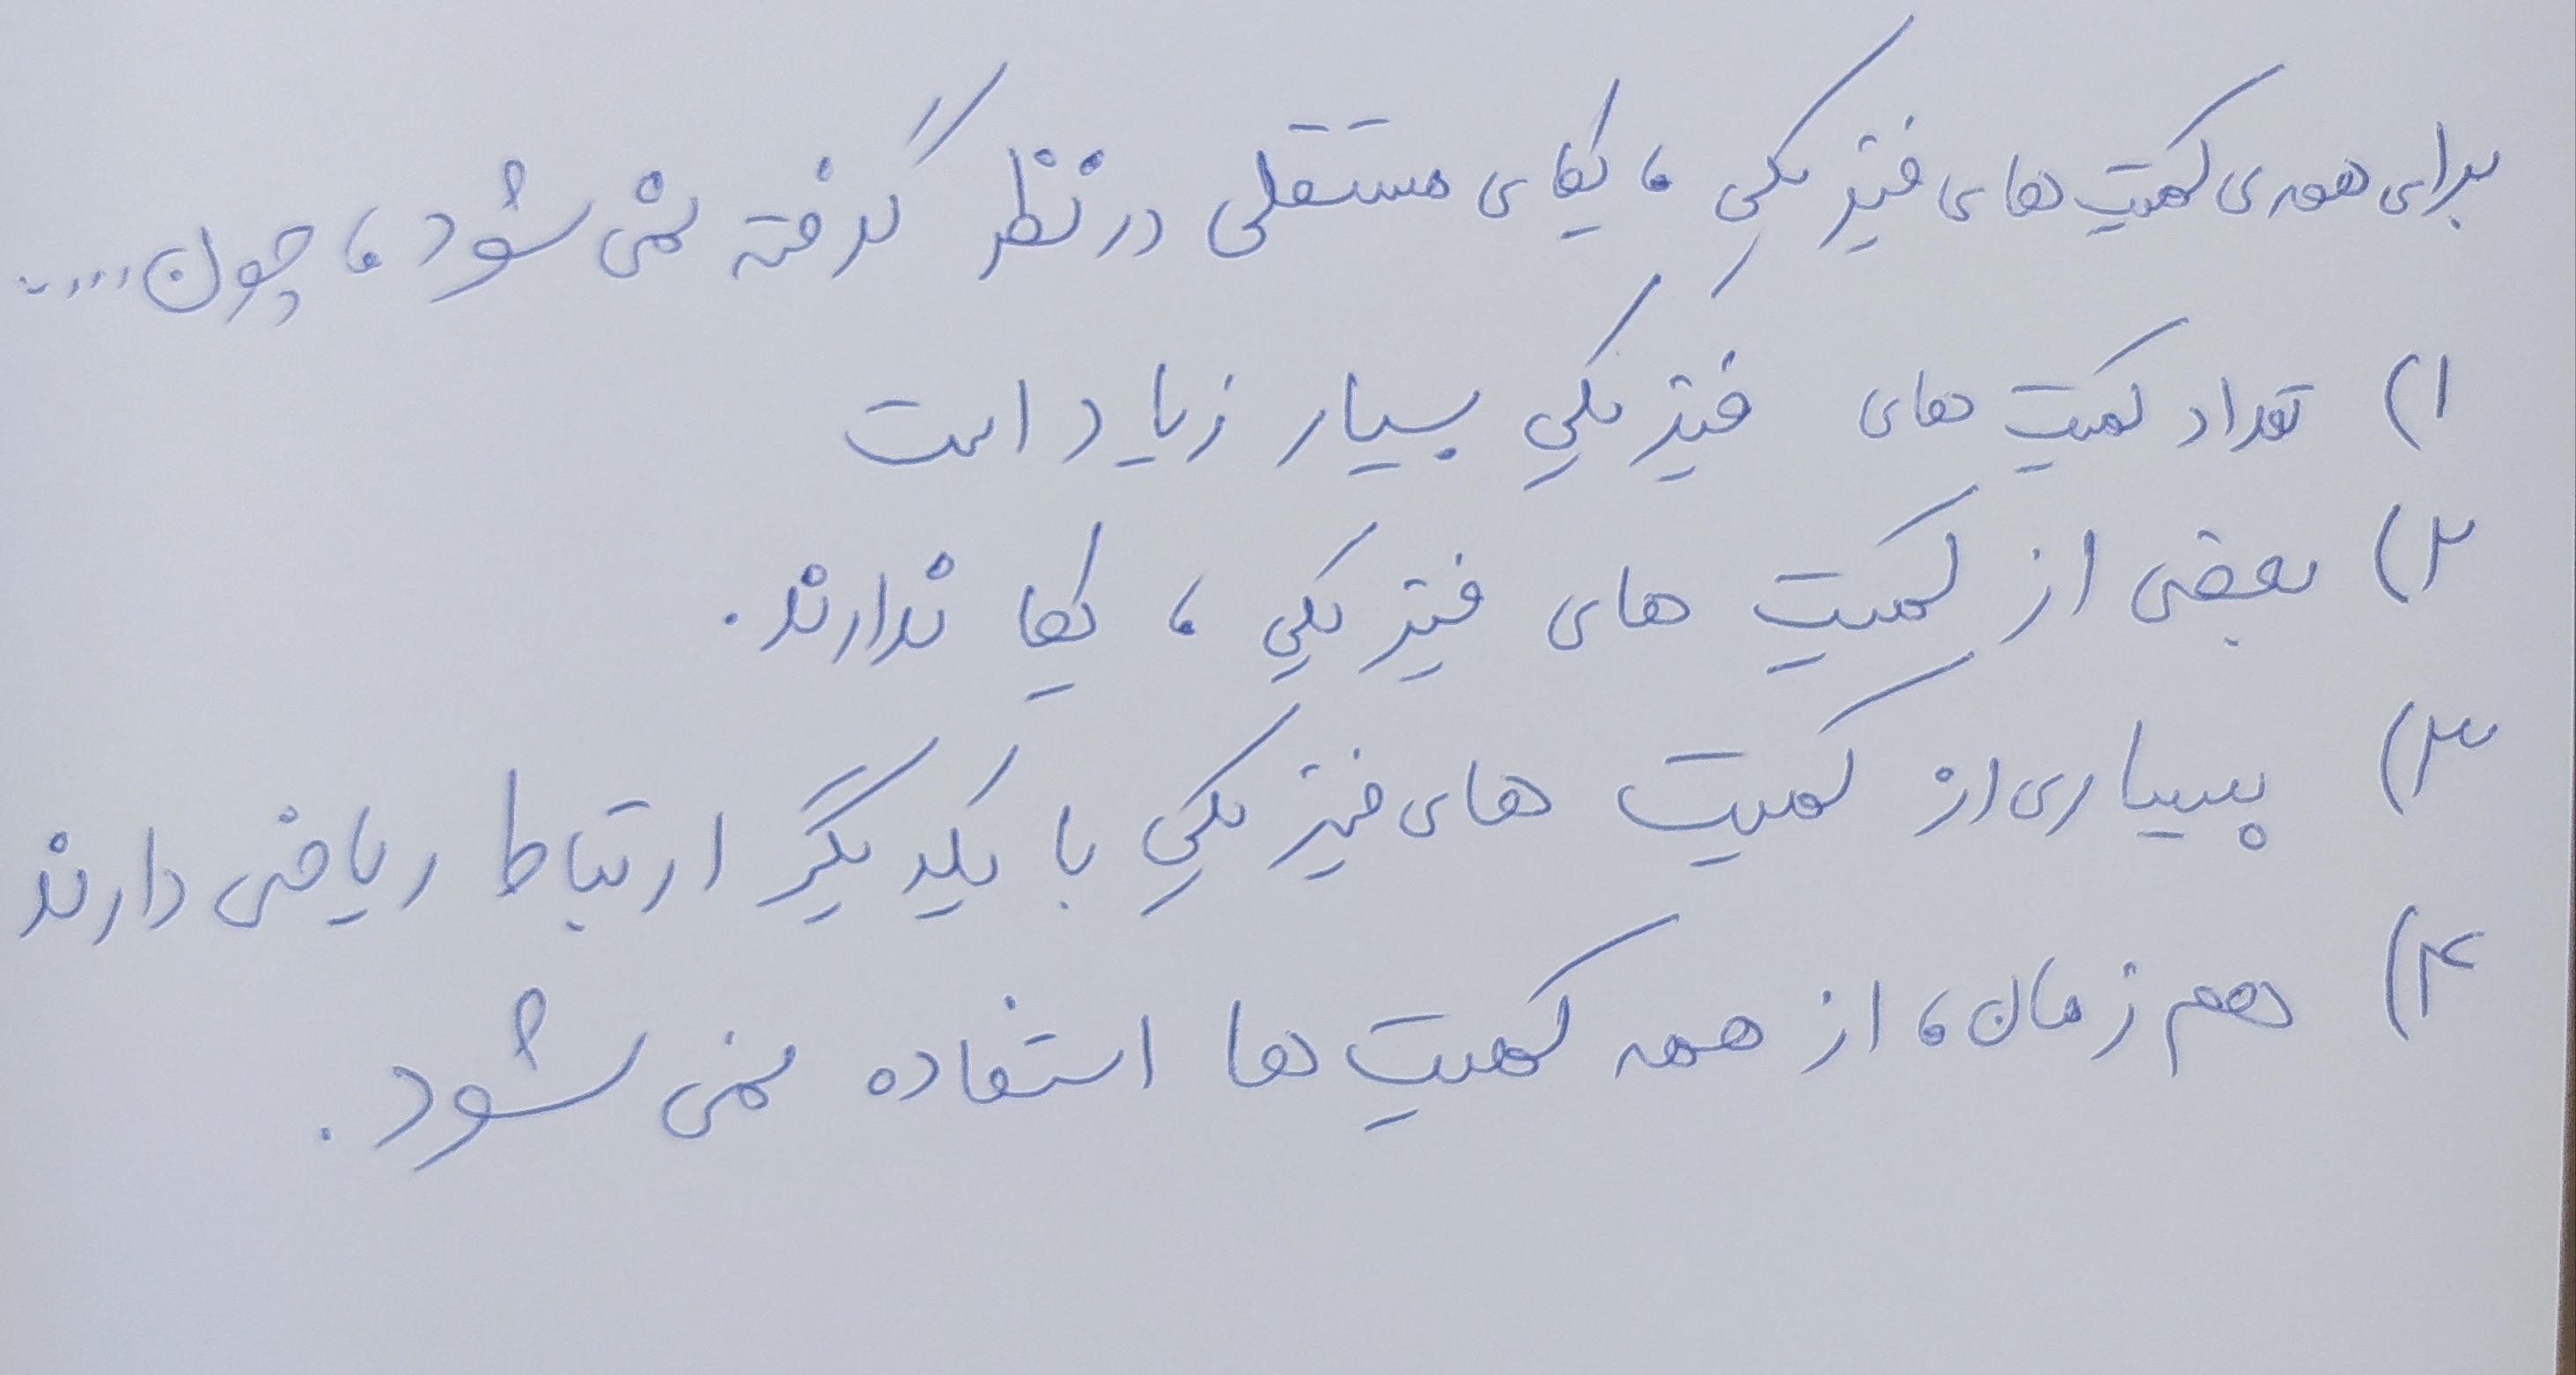 برای همه‌ی کمیت های فیزیکی ، یکای مستقلی در نظر گرفته نمی شود ، چون ....
۱) تعداد کمیت های فیزیکی بسیار زیاد است
۲) بعضی از کمیت های فیزیکی ، یکا ندارند .
۳) بسیاری از کمیت های فیزیکی با یکدیگر ارتباط ریاضی دارند
۴) هم زمان ، از همه کمیت ها استفاده نمی شود .